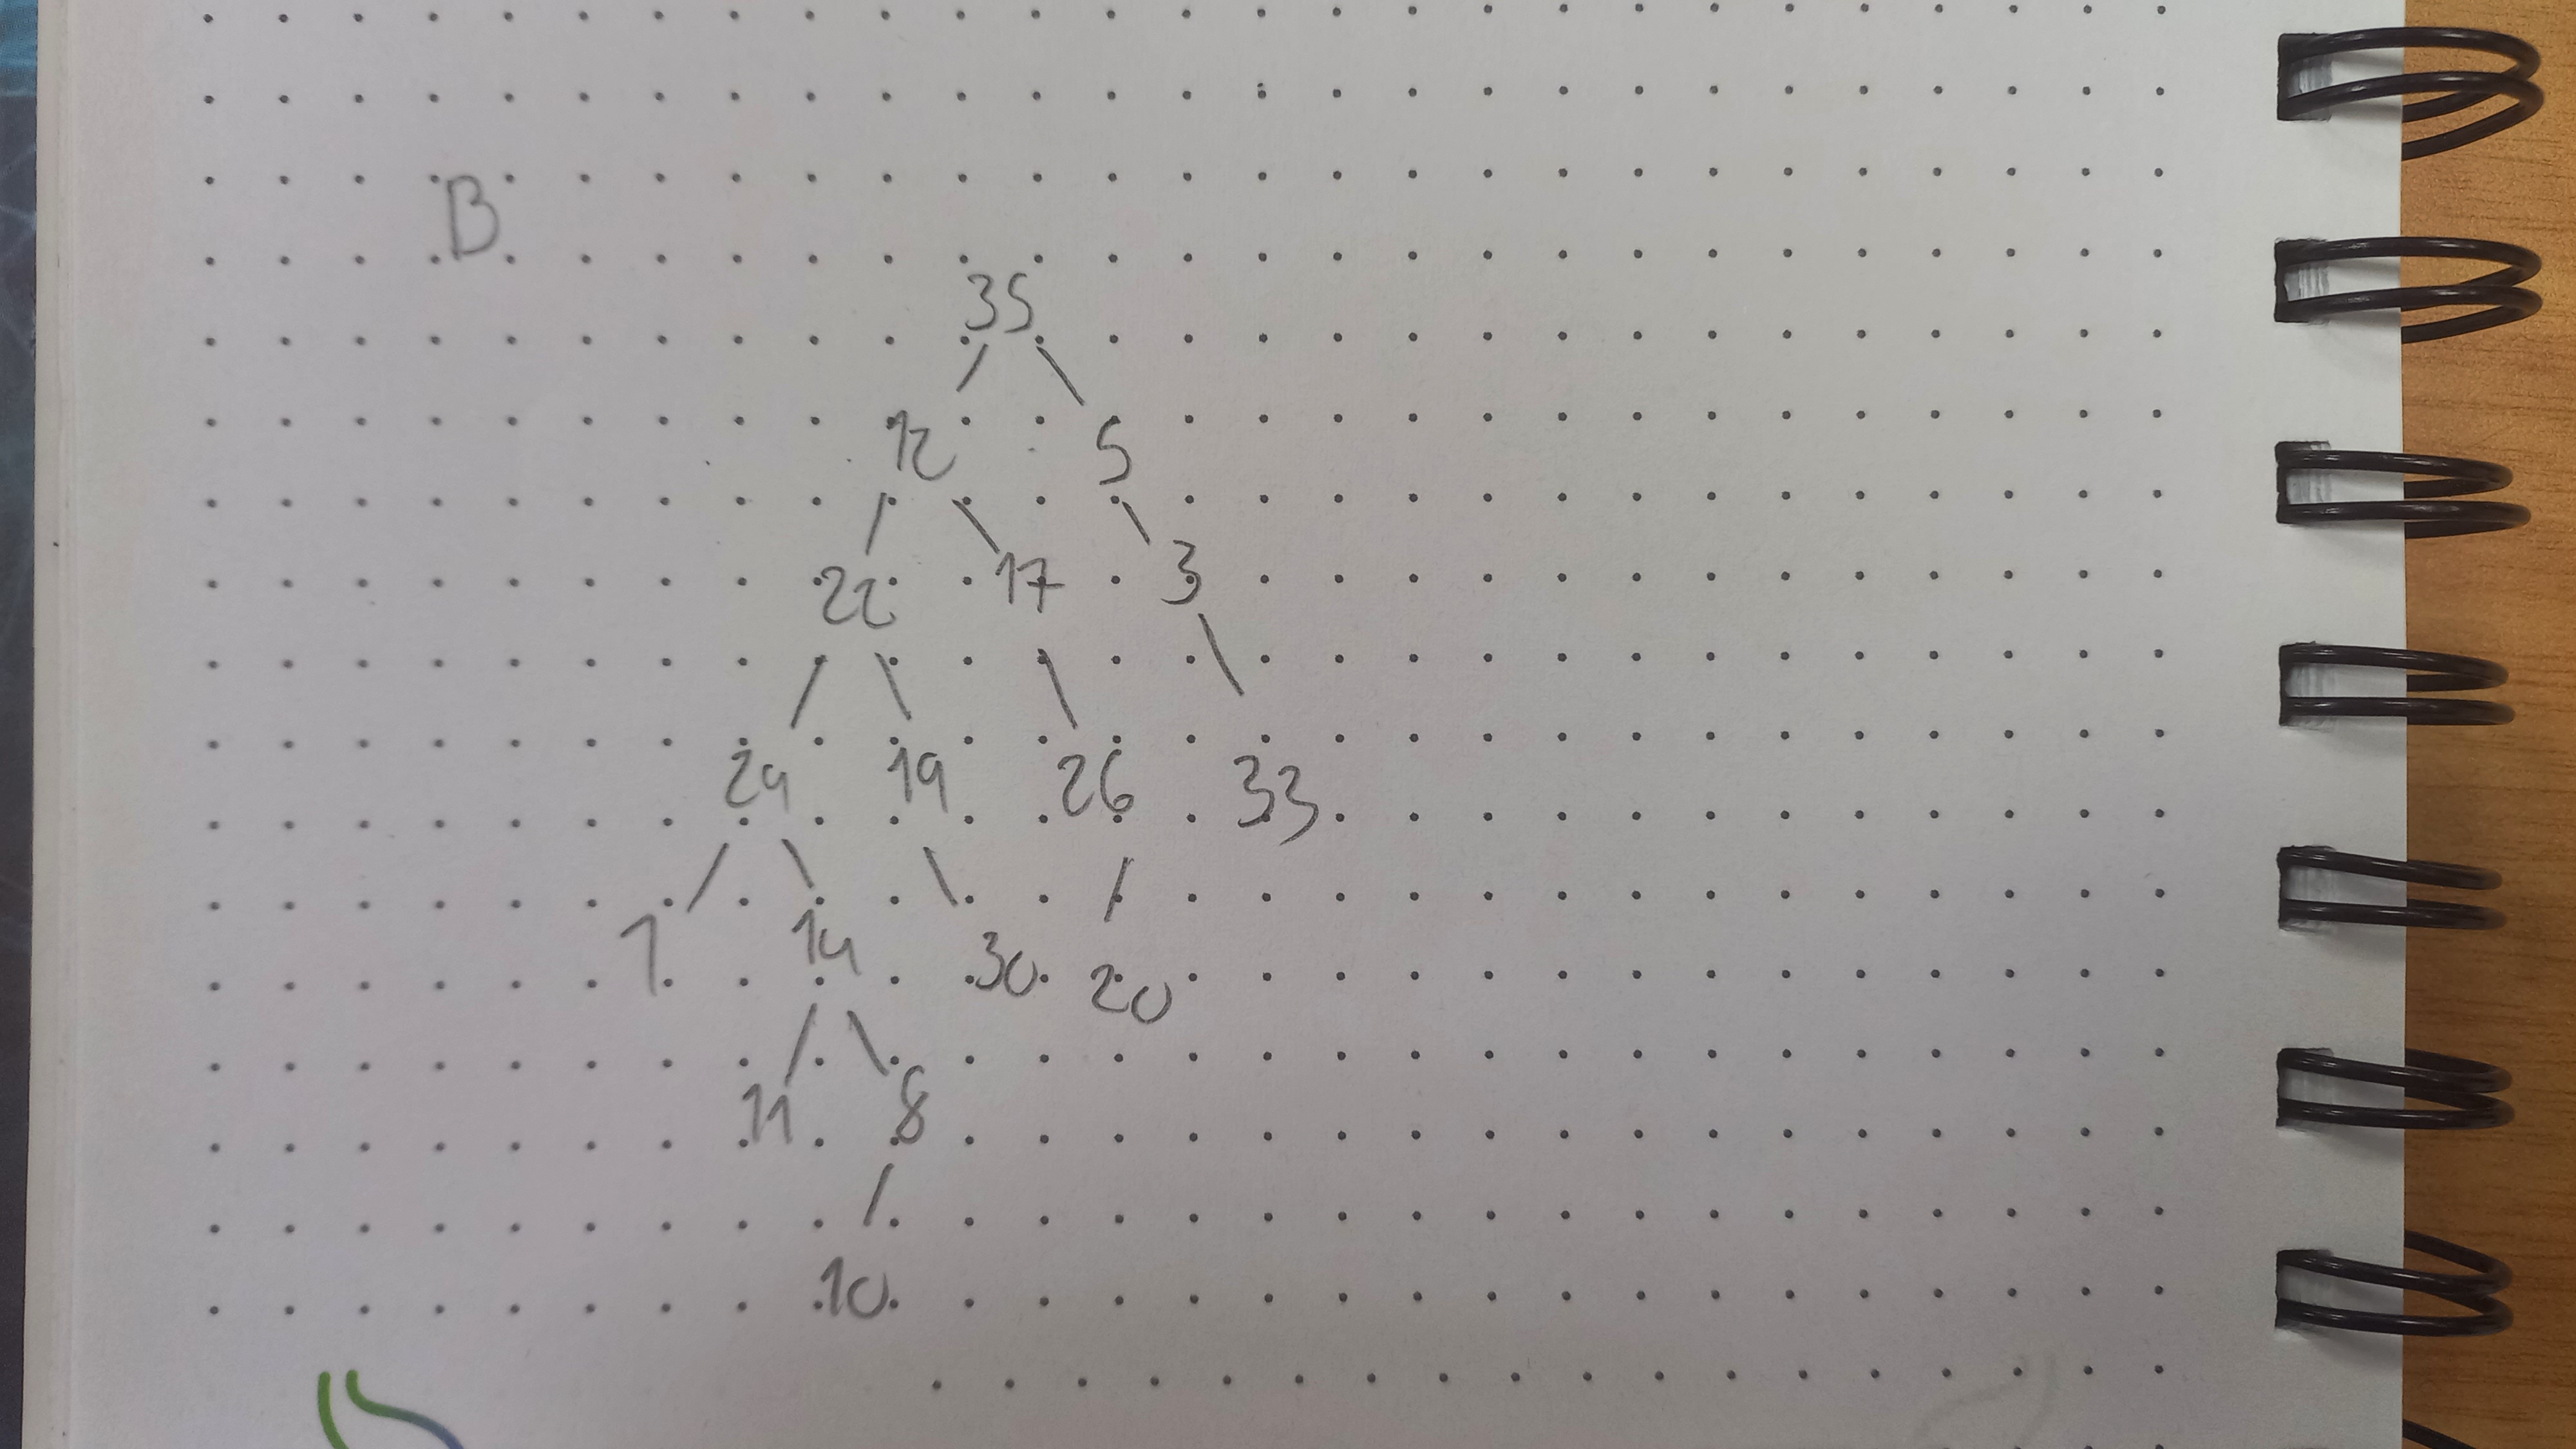 B
35
12 5
22 17 3
24 19 26 33
1 14 30 20
11 8
10